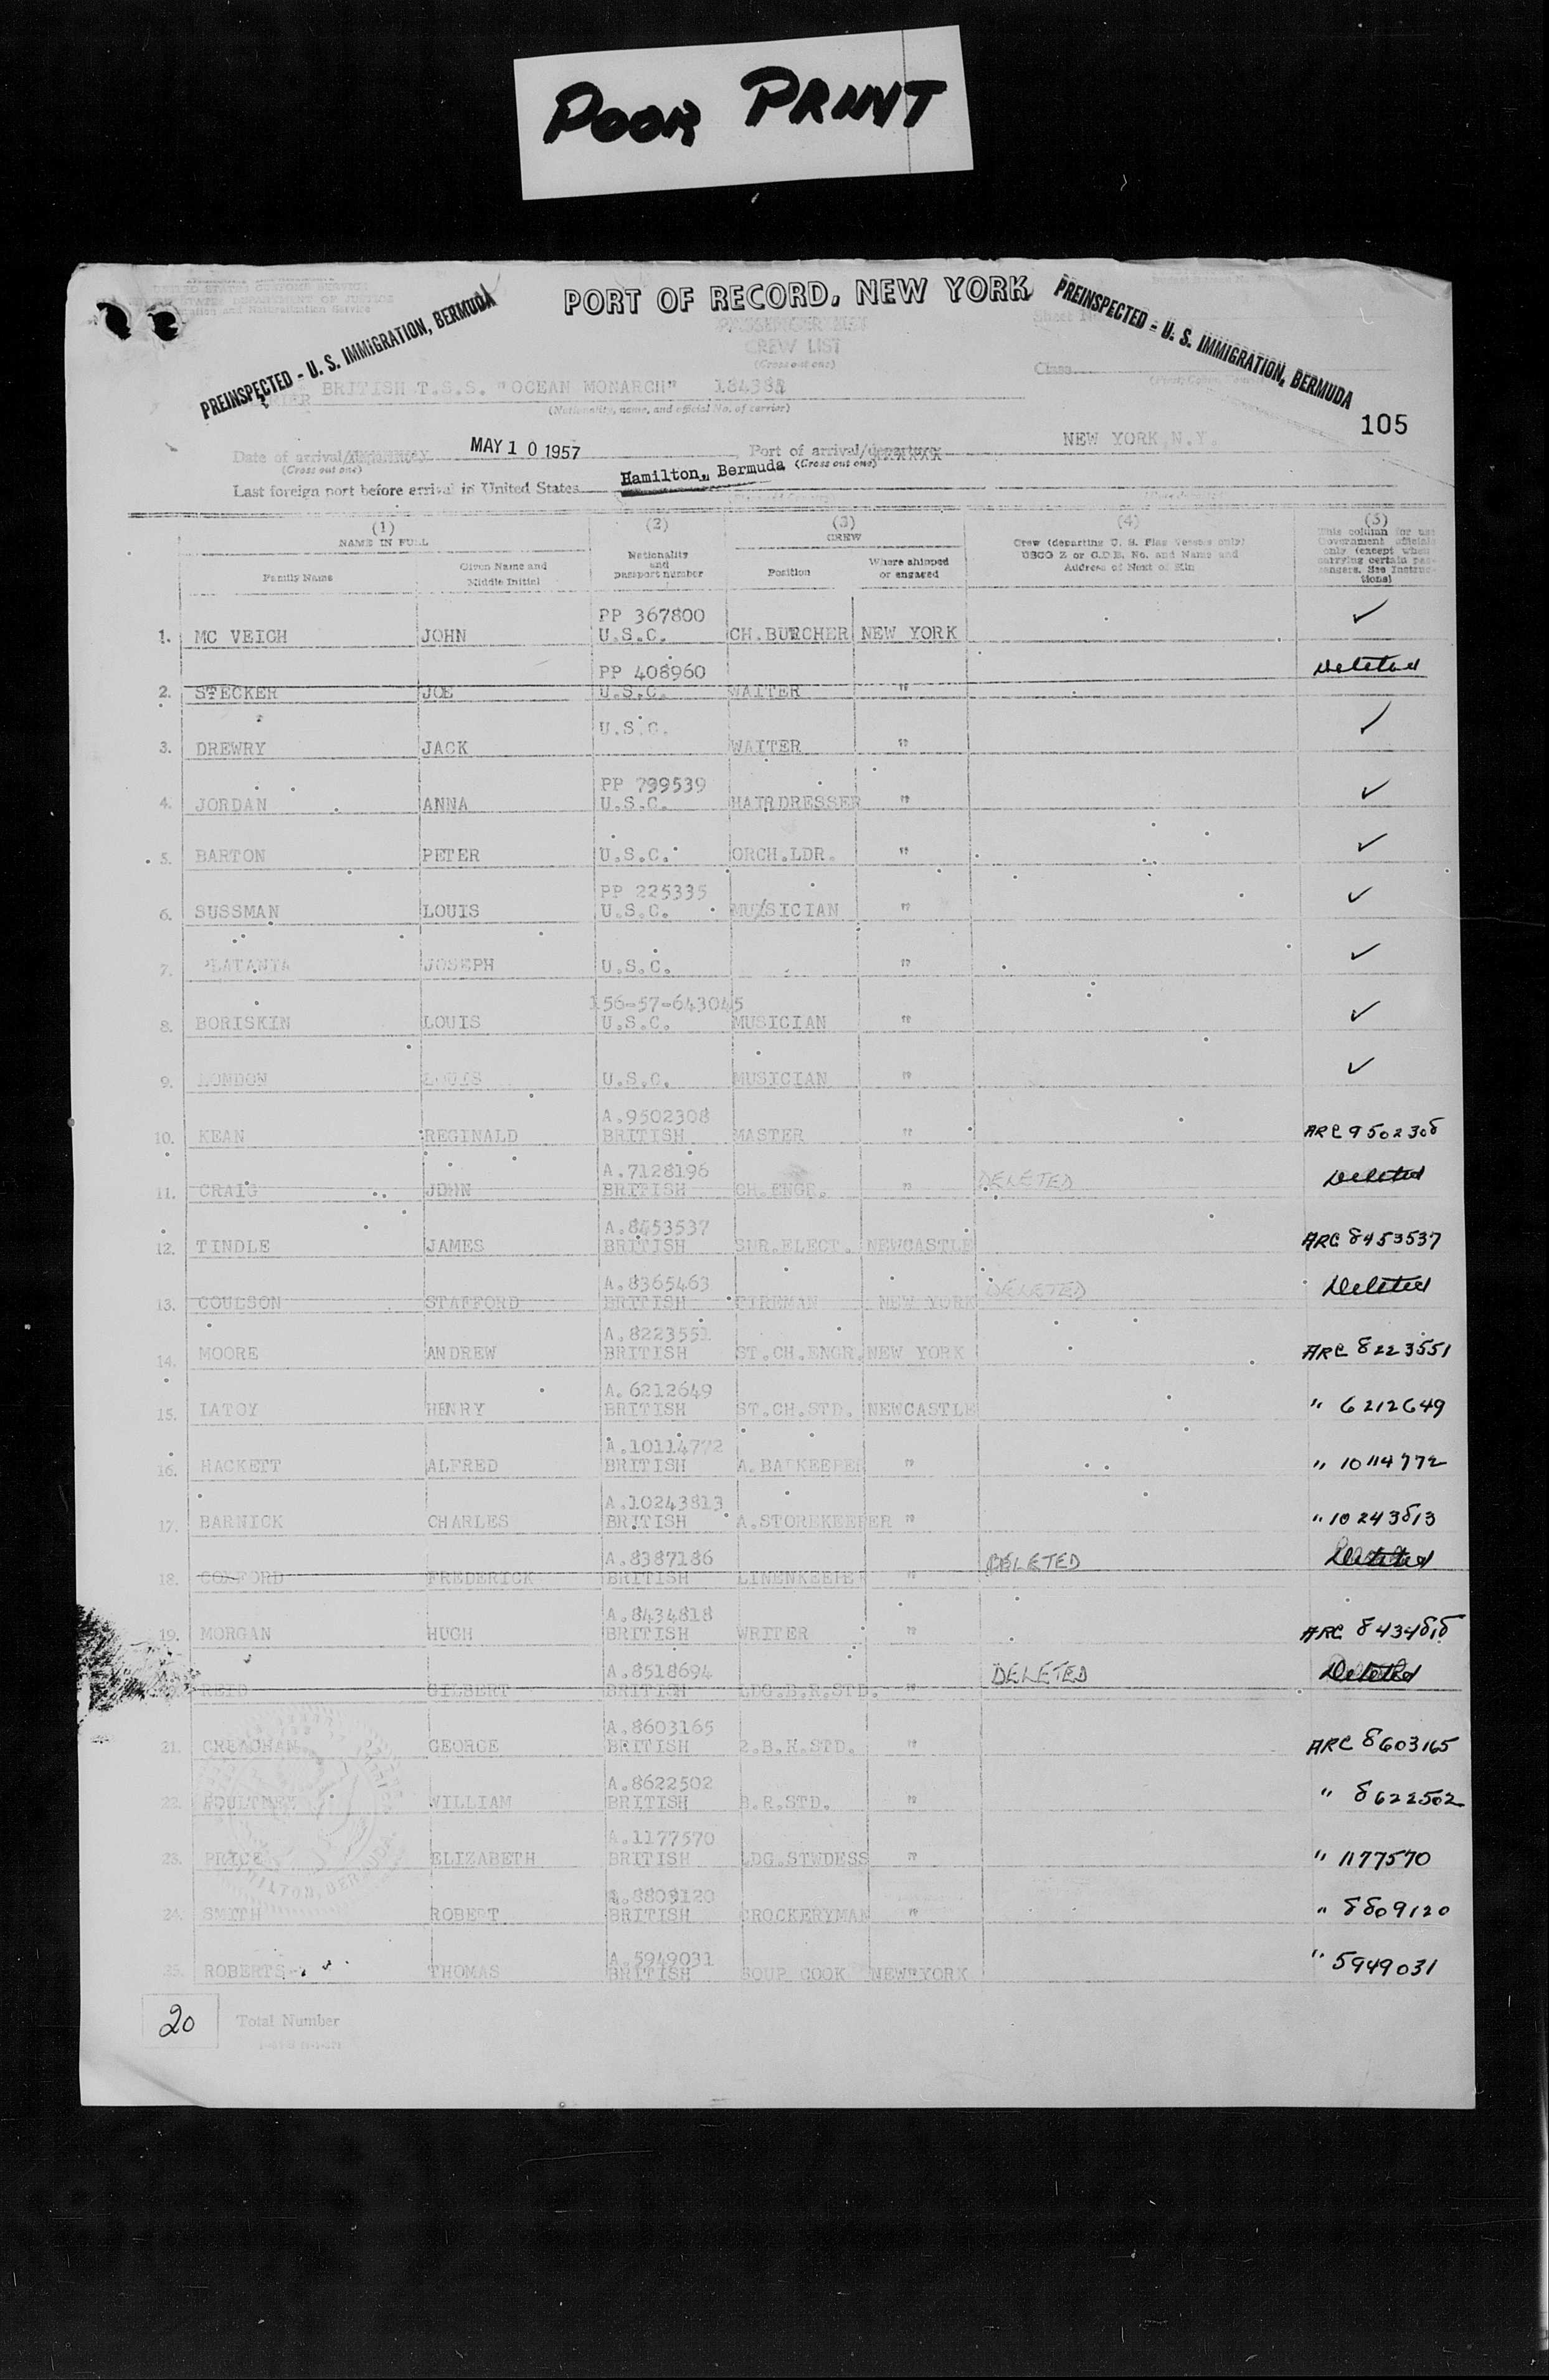 POOR PRINT
PORT OF RECORD, NEW YORK
PREINSPECTED - U. S. IMMIGRATION, BERMUDA
PREINSPECTED - U. S. IMMIGRATION, BERMUDA
UNITED STATES CUSTOMS SERVICE
DEPARTMENT OF JUSTICE
and Naturalization Service
PASSENGER LIST
CREW LIST
(Cross out one)
Sheet No.
Class
BRITISH T.S.S. "OCEAN MONARCH"
(Nationality, name, and official No. of carrier)
105
Date of arrival/ MAY 10 1957, Port of arrival/departure NEW YORK, N.Y.
(Cross out one) (Cross out one)
Last foreign port before arrival in United States Hamilton, Bermuda
(1) (2) (3) (4) (5)
NAME IN FULL CREW
Family Name Given Name and Middle Initial Nationality and passport number Position Where shipped or engaged Crew (departing U. S. Flag Vessels only) USCG Z or C.D.B. No. and Name and Address of Next of Kin This column for use Government officials only (except when carrying certain passengers. See Instructions)
PP 367800
1. MC VEIGH JOHN U.S.C. CH.BUTCHER NEW YORK ✓
PP 408960 Deleted
2. STECKER JOE U.S.C. WAITER "
U.S.C. ✓
3. DREWRY JACK WAITER "
PP 799539 ✓
4. JORDAN ANNA U.S.C. HAIRDRESSER "
5. BARTON PETER U.S.C. ORCH.LDR. " ✓
PP 225335 ✓
6. SUSSMAN LOUIS U.S.C. MUSICIAN "
7. PLATANIA JOSEPH U.S.C. " ✓
156-57-643045
8. BORISKIN LOUIS U.S.C. MUSICIAN " ✓
9. LONDOW LOUIS U.S.C. MUSICIAN " ✓
A.9502308
10. KEAN REGINALD BRITISH MASTER " ARC 9502308
A.7128196 DELETED Deleted
11. CRAIG JOHN BRITISH CH.ENGR. "
A.8453537
12. TINDLE JAMES BRITISH SUR.ELECT. NEWCASTLE ARC 8453537
A.8365463 DELETED Deleted
13. COULSON STAFFORD BRITISH FIREMAN NEW YORK
A.8223551
14. MOORE ANDREW BRITISH ST.CH.ENGR. NEW YORK ARC 8223551
A.6212649
15. LATOY HENRY BRITISH ST.CH.STD. NEWCASTLE " 6212649
A.10114772
16. HACKETT ALFRED BRITISH A.BARKEEPER " " 10114772
A.10243813
17. BARNICK CHARLES BRITISH A.STOREKEEPER " " 10243813
A.8387186 DELETED Deleted
18. COXFORD FREDERICK BRITISH LINENKEEPER "
A.8434818
19. MORGAN HUGH BRITISH WRITER " ARC 8434818
A.8518694 DELETED Deleted
REID GILBERT BRITISH LDG.B.R.STD. "
A.8603165
21. CREAGHAN GEORGE BRITISH 2.B.R.STD. " ARC 8603165
A.8622502
22. POULTNEY WILLIAM BRITISH B.R.STD. " " 8622502
A.1177570
23. PRICE ELIZABETH BRITISH LDG.STWDESS " " 1177570
A.8809120
24. SMITH ROBERT BRITISH CROCKERYMAN " " 8809120
A.5949031
25. ROBERTS THOMAS BRITISH SOUP COOK NEW YORK " 5949031
20 Total Number